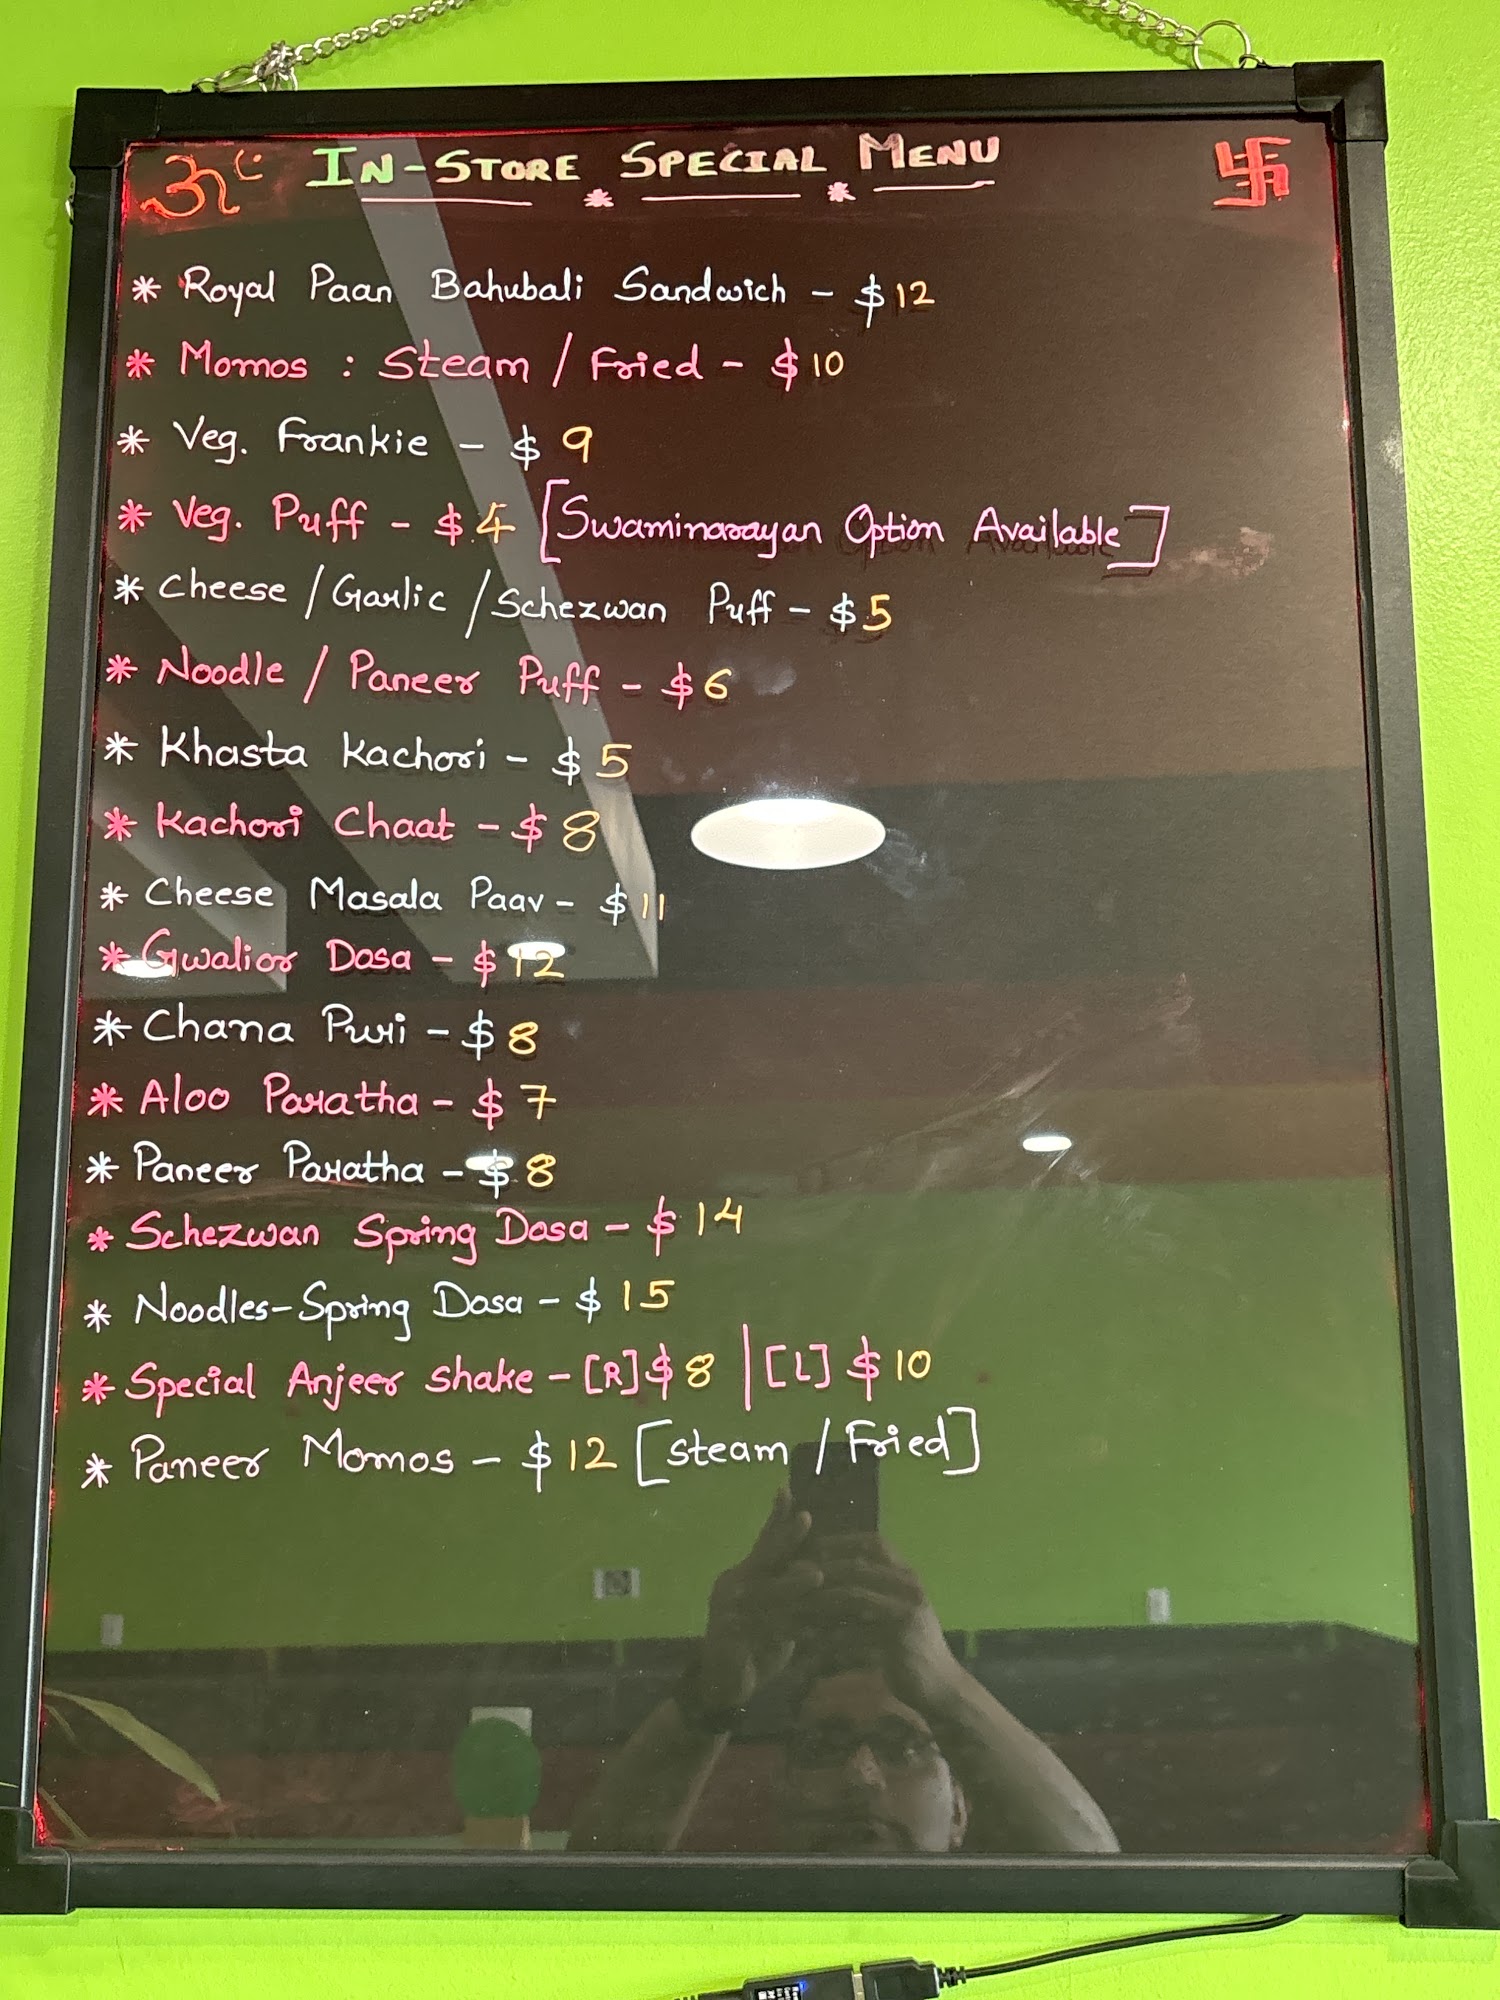 ॐ IN-STORE SPECIAL MENU 卐
* Royal Paan Bahubali Sandwich - $12
* Momos : Steam / Fried - $10
* Veg. Frankie - $9
* Veg. Puff - $4 [Swaminarayan Option Available]
* Cheese / Garlic / Schezwan Puff - $5
* Noodle / Paneer Puff - $6
* Khasta Kachori - $5
* Kachori Chaat - $8
* Cheese Masala Paav - $11
* Gwalior Dosa - $12
* Chana Puri - $8
* Aloo Paratha - $7
* Paneer Paratha - $8
* Schezwan Spring Dosa - $14
* Noodles-Spring Dosa - $15
* Special Anjeer Shake - [R] $8 | [L] $10
* Paneer Momos - $12 [Steam / Fried]